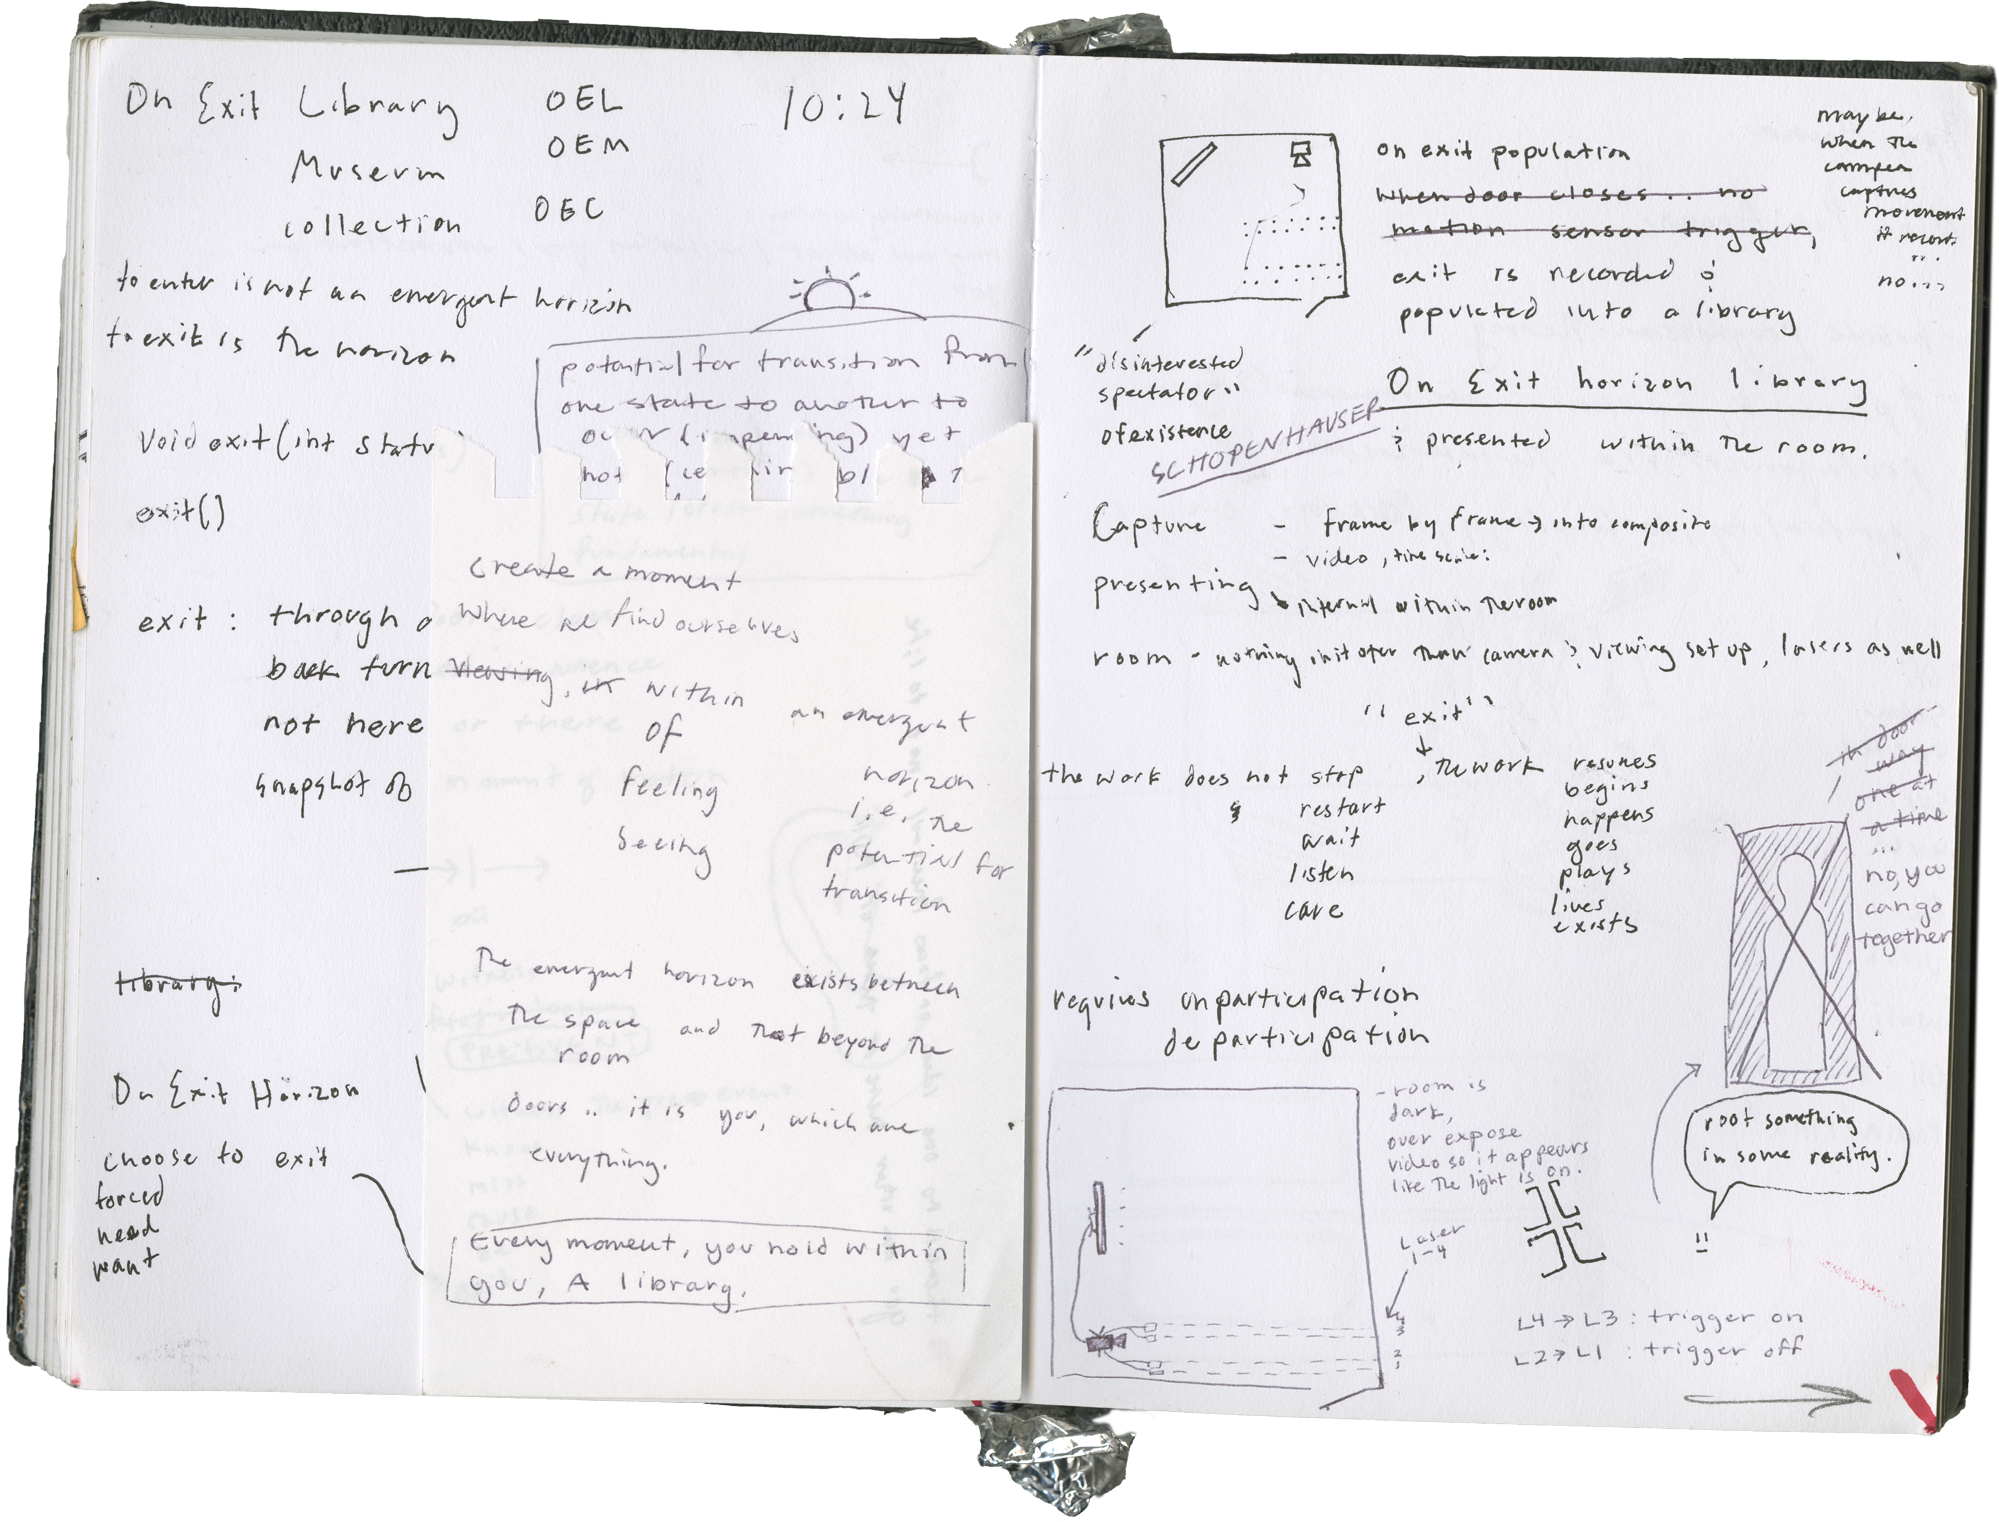 On Exit Library OEL 10:24
Museum OEM
collection OEC
to enter is not an emergent horizon
to exit is the horizon
potential for transition from
one state to another to
occur (impending) yet
not
void exit(int status)
exit()
exit : through
back turn
not here
snapshot of
library:
On Exit Horizon
choose to exit
forced
need
want
create a moment
where we find ourselves
viewing, in within an emergent
of
feeling
seeing
horizon
i.e. the
potential for
transition
The emergent horizon exists between
the space and that beyond the
room
doors .. it is you, which are
everything.
Every moment, you hold within
you, A library.
on exit population
when door closes... no
motion sensor trigger,
exit is recorded &
populated into a library
maybe,
when the
camera
captures
movement
it records
...
no...
"disinterested
spectator"
of existence
SCHOPENHAUSER
On Exit horizon library
& presented within the room.
Capture - frame by frame → into composite
- video, time series:
presenting ↘ internal within the room
room - nothing in it other than camera & viewing set up, lasers as well
"exit"
↓
the work does not stop , the work resumes
& restart begins
wait happens
listen goes
care plays
lives
exists
in door
way
one at
a time
...
no, you
can go
together
requires unparticipation
departicipation
- room is
dark,
over expose
video so it appears
like the light is on.
root something
in some reality.
Laser
1-4
4
3
2
1
L4 → L3 : trigger on
L2 → L1 : trigger off